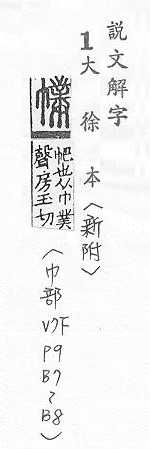 説文解字
1大徐本〈新附〉
帊也从巾菐
聲房玉切
〈巾部 V7下 P9 B7~B8〉